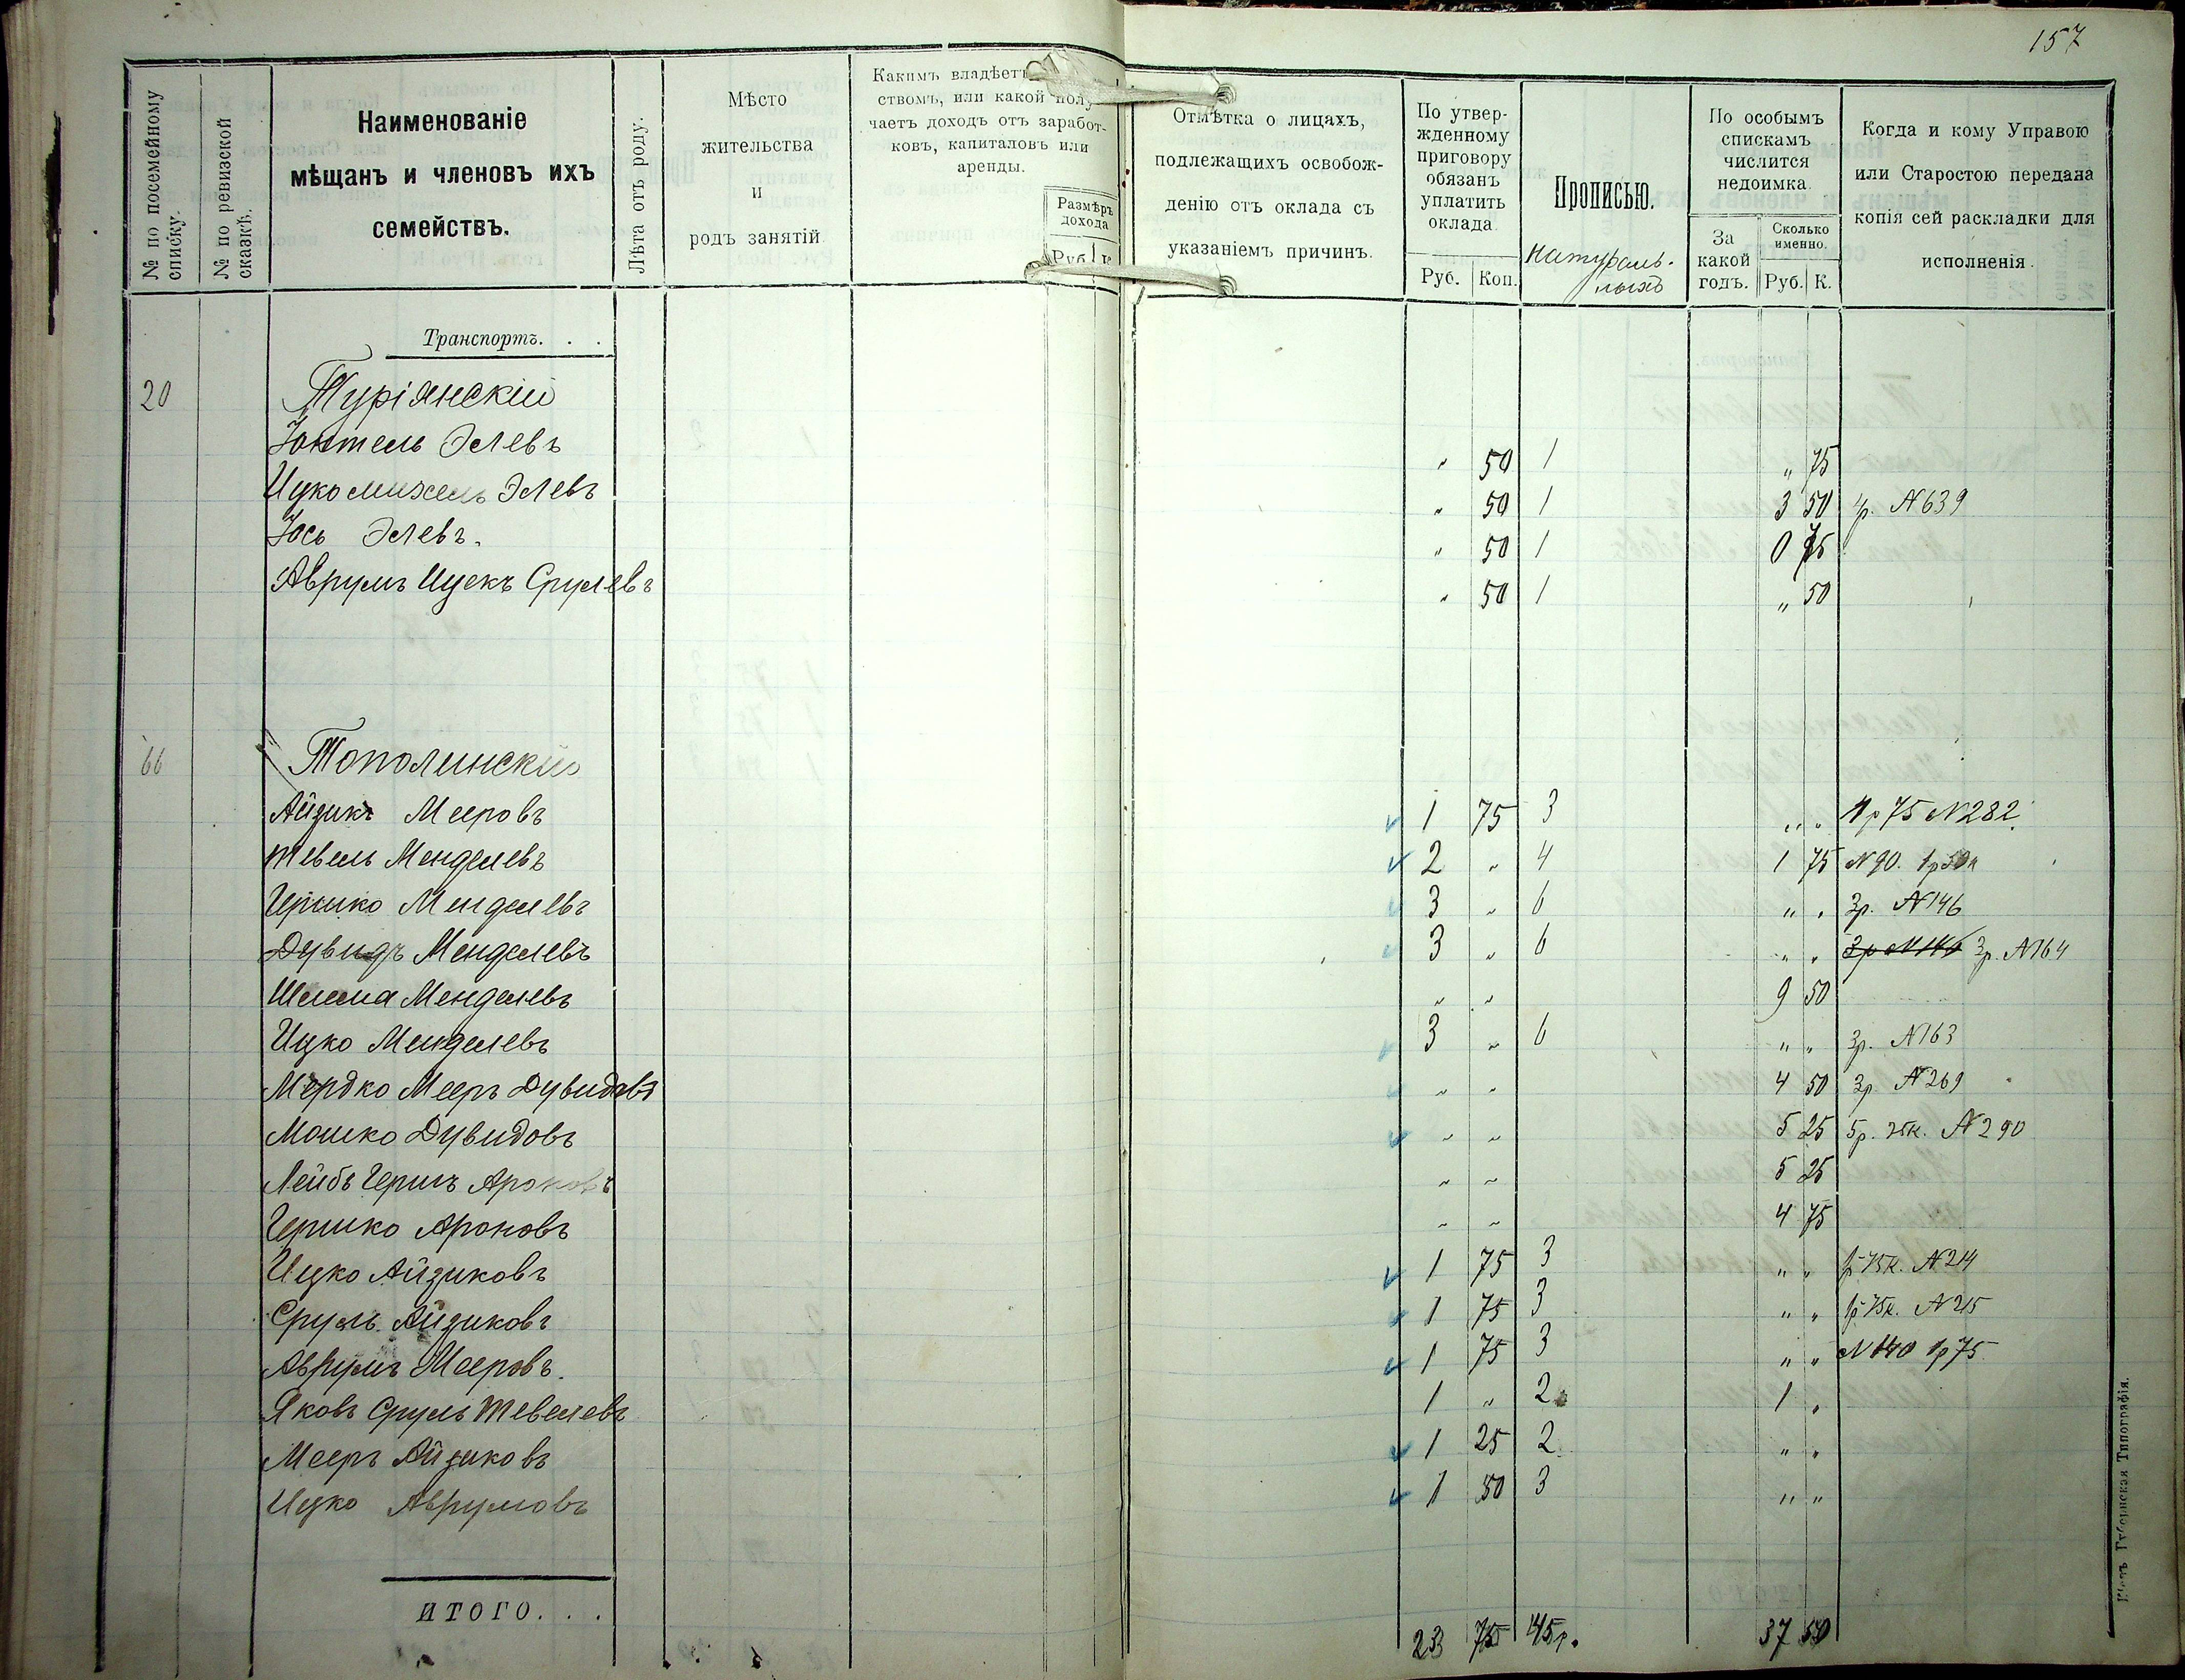 157
№ по посемейному списку.
№ по ревизской сказкѣ.
Наименованіе
мѣщанъ и членовъ ихъ
семействъ.
Лѣта отъ роду.
Мѣсто
жительства
и
родъ занятій
Какимъ владѣетъ
ствомъ, или какой полу-
чаетъ доходъ отъ заработ-
ковъ, капиталовъ или
аренды.
Размѣръ
дохода
Руб. К
Отмѣтка о лицахъ,
подлежащихъ освобож-
денію отъ оклада съ
указаніемъ причинъ.
По утвер-
жденному
приговору
обязанъ
уплатить
оклада
Руб. Коп.
Прописью.
Натураль-
ныхъ
По особымъ
спискамъ
числится
недоимка.
За
какой
годъ.
Сколько
именно.
Руб. К.
Когда и кому Управою
или Старостою передана
копія сей раскладки для
исполненія.
Транспортъ. . .
20 Туріянскій
Іонтель Элевъ " 50 1 " 75
Ицко Михель Элевъ " 50 1 3 50 4р. N 639
Іось Элевъ. " 50 1 0 75
Аврумъ Ицекъ Срулевъ " 50 1 " 50
66 Тополинскій
Айзикъ Мееровъ 1 75 3 " " 1р 75 N 282
Тевель Менделевъ 2 " 4 1 75 N 90. 1р 50к
Гершко Менделевъ 3 " 6 " " 3р. N 146
Дувидъ Менделевъ 3 " 6 " " 3р N 146 3р. N 164
Шлема Менделевъ " " 9 50
Ицко Менделевъ 3 " 6 " " 3р. N 163
Мордко Мееръ Дувидовъ " " 4 50 3р. N 269
Мошко Дувидовъ " " 5 25 5р. 25к. N 290
Лейбъ Гершъ Ароновъ " " 5 25
Гершко Ароновъ " " 4 75
Ицко Айзиковъ 1 75 3 " " 1р 75к. N 214
Сруль Айзиковъ 1 75 3 " " 1р 75к. N 215
Аврумъ Мееровъ. 1 75 3 " " N 140 1р 75
Яковъ Сруль Тевелевъ 1 " 2 1 "
Мееръ Айзиковъ 1 25 2 " "
Ицко Аврумовъ 1 50 3 " "
ИТОГО. . . 23 75 45р. 37 50
Кіевъ Губернская Типографія.